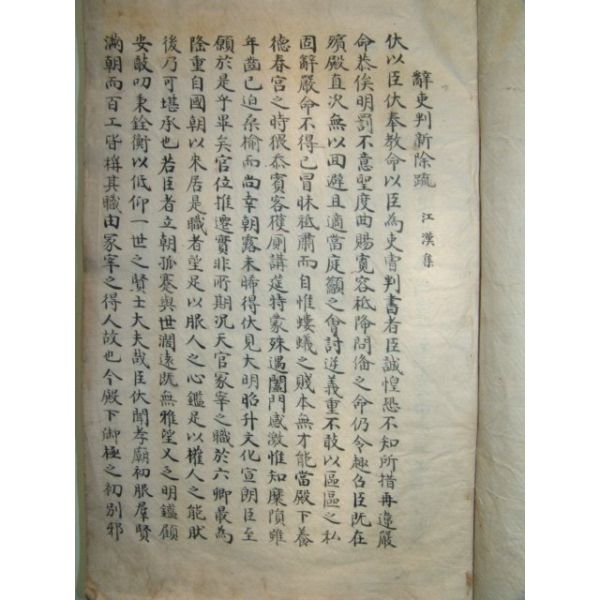 辭吏判新除疏 江漢集
伏以臣伏奉教命以臣為吏曹判書者臣誠惶恐不知所措再違嚴
命恭俟明罰不意聖度曲賜寬容祗降問俻之命仍令趣召臣既在
殯殿直次無以回避且適當庭籲之會討逆義重不敢以區區之私
固辭嚴命不得已冒昧祗肅而自惟螻蟻之賤本無才能當殿下養
德春宮之時猥忝賓客獲厠講筵特蒙殊遇闔門感激惟知糜隕雖
年齒已迫桑榆而尚幸朝露未晞得伏見大明昭升文化宣朗臣至
願於是乎畢矣官位推遷實非所期況天官冢宰之職於六卿最為
隆重自國朝以來居是職者望足以服人之心鑑足以權人之能然
後乃可堪承也若臣者立朝孤蹇與世濶遠既無雅望又乏明鑑顧
安敢叨秉銓衡以低仰一世之賢士大夫哉臣伏聞孝廟初服羣賢
滿朝而百工皆稱其職由冢宰之得人故也今殿下御極之初別邪